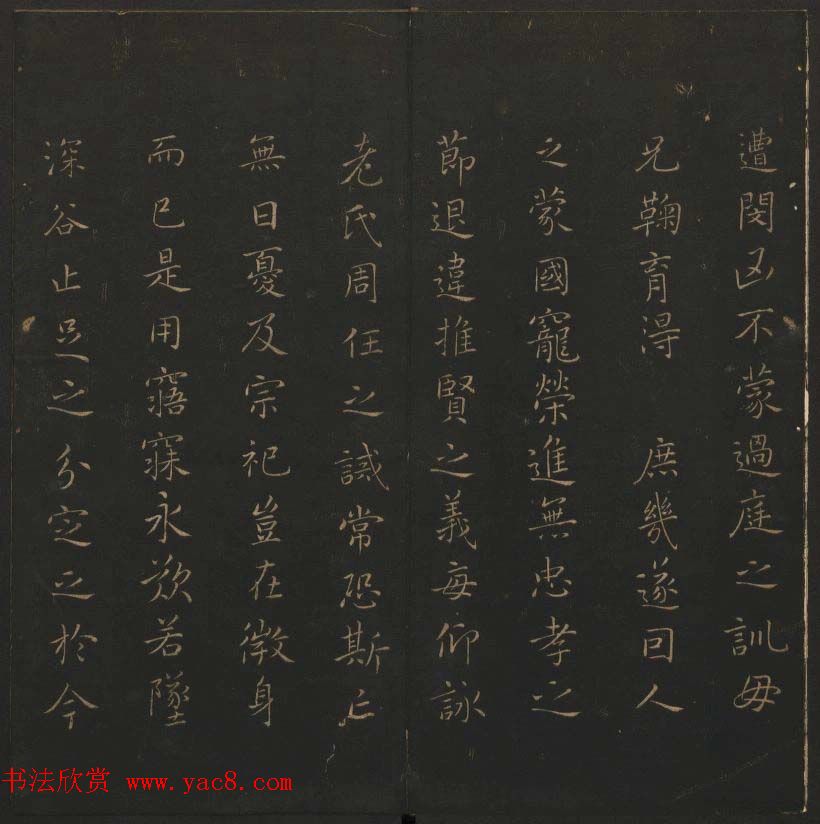 遭閔凶不蒙過庭之訓母
兄鞠育得 庶幾遂因人
之蒙國寵榮進無忠孝之
節退違推賢之義每仰詠
老氏周任之誡常恐斯亡
無日憂及宗祀豈在微身
而已是用寤寐永歎若墜
深谷止足之分定之於今
书法欣赏 www.yac8.com